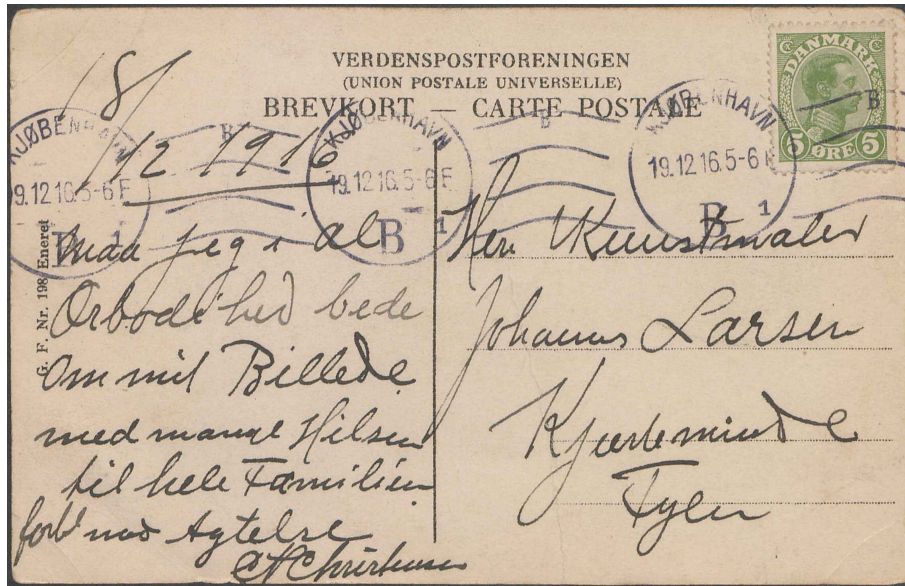 VERDENSPOSTFORENINGEN
(UNION POSTALE UNIVERSELLE)
BREVKORT — CARTE POSTALE
DANMARK
5 ØRE 5
KJØBENHAVN
19.12.16. 5-6 E
B 1
KJØBENHAVN
19.12.16. 5-6 E
B 1
KJØBENHAVN
19.12.16. 5-6
B 1
B
B
B
G. F. Nr. 198 Eneret
18/
12 1916
Maa jeg i al
Ærbødighed bede
om mit Billede
med mange Hilsen
til hele Familien
forbl med Agtelse
Christensen
Herr Kunstmaler
Johannes Larsen
Kjerteminde
Fyen